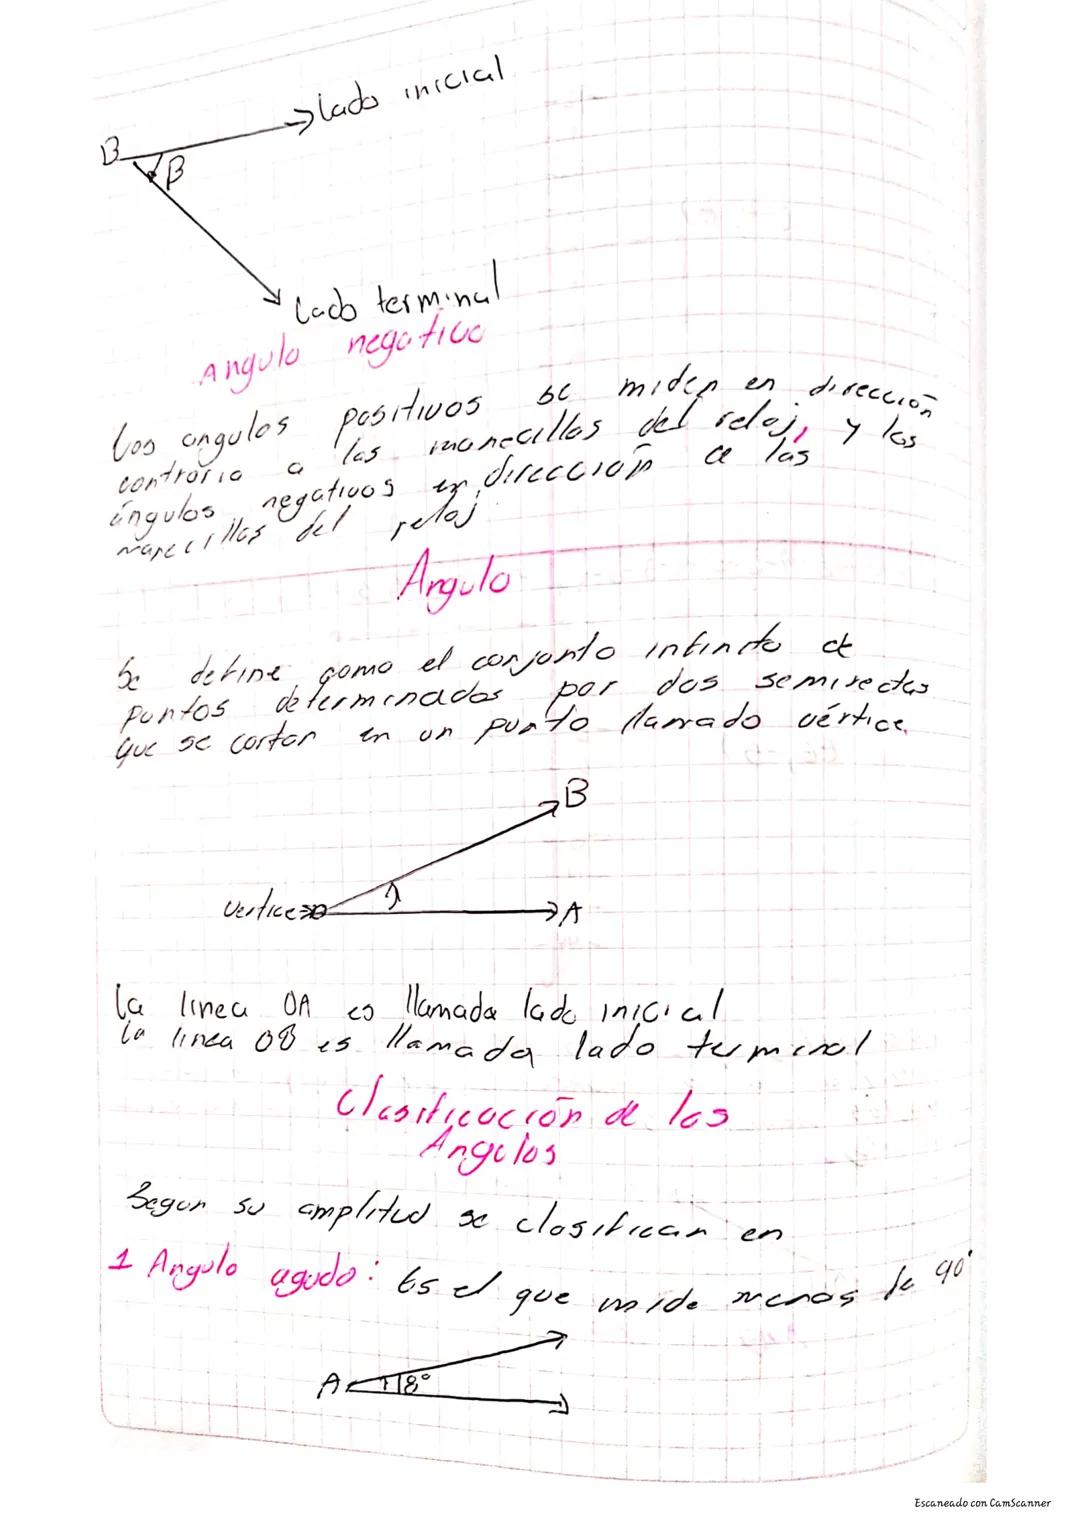 Lado inicial
B
β
Lado terminal
Angulo negativo
Los angulos positivos se miden en dirección
contraria a las manecillas del reloj, y los
ángulos negativos en dirección a las
manecillas del reloj
Angulo
Se define como el conjunto infinito de
puntos determinados por dos semirectas
que se cortan en un punto llamado vértice.
B
Vertice
A
La linea OA es llamada lado inicial
La linea OB es llamada lado terminal
Clasificación de los
Angulos
Segun su amplitud se clasifican en
1 Angulo agudo: Es el que mide menos de 90°
A 18°
Escaneado con CamScanner